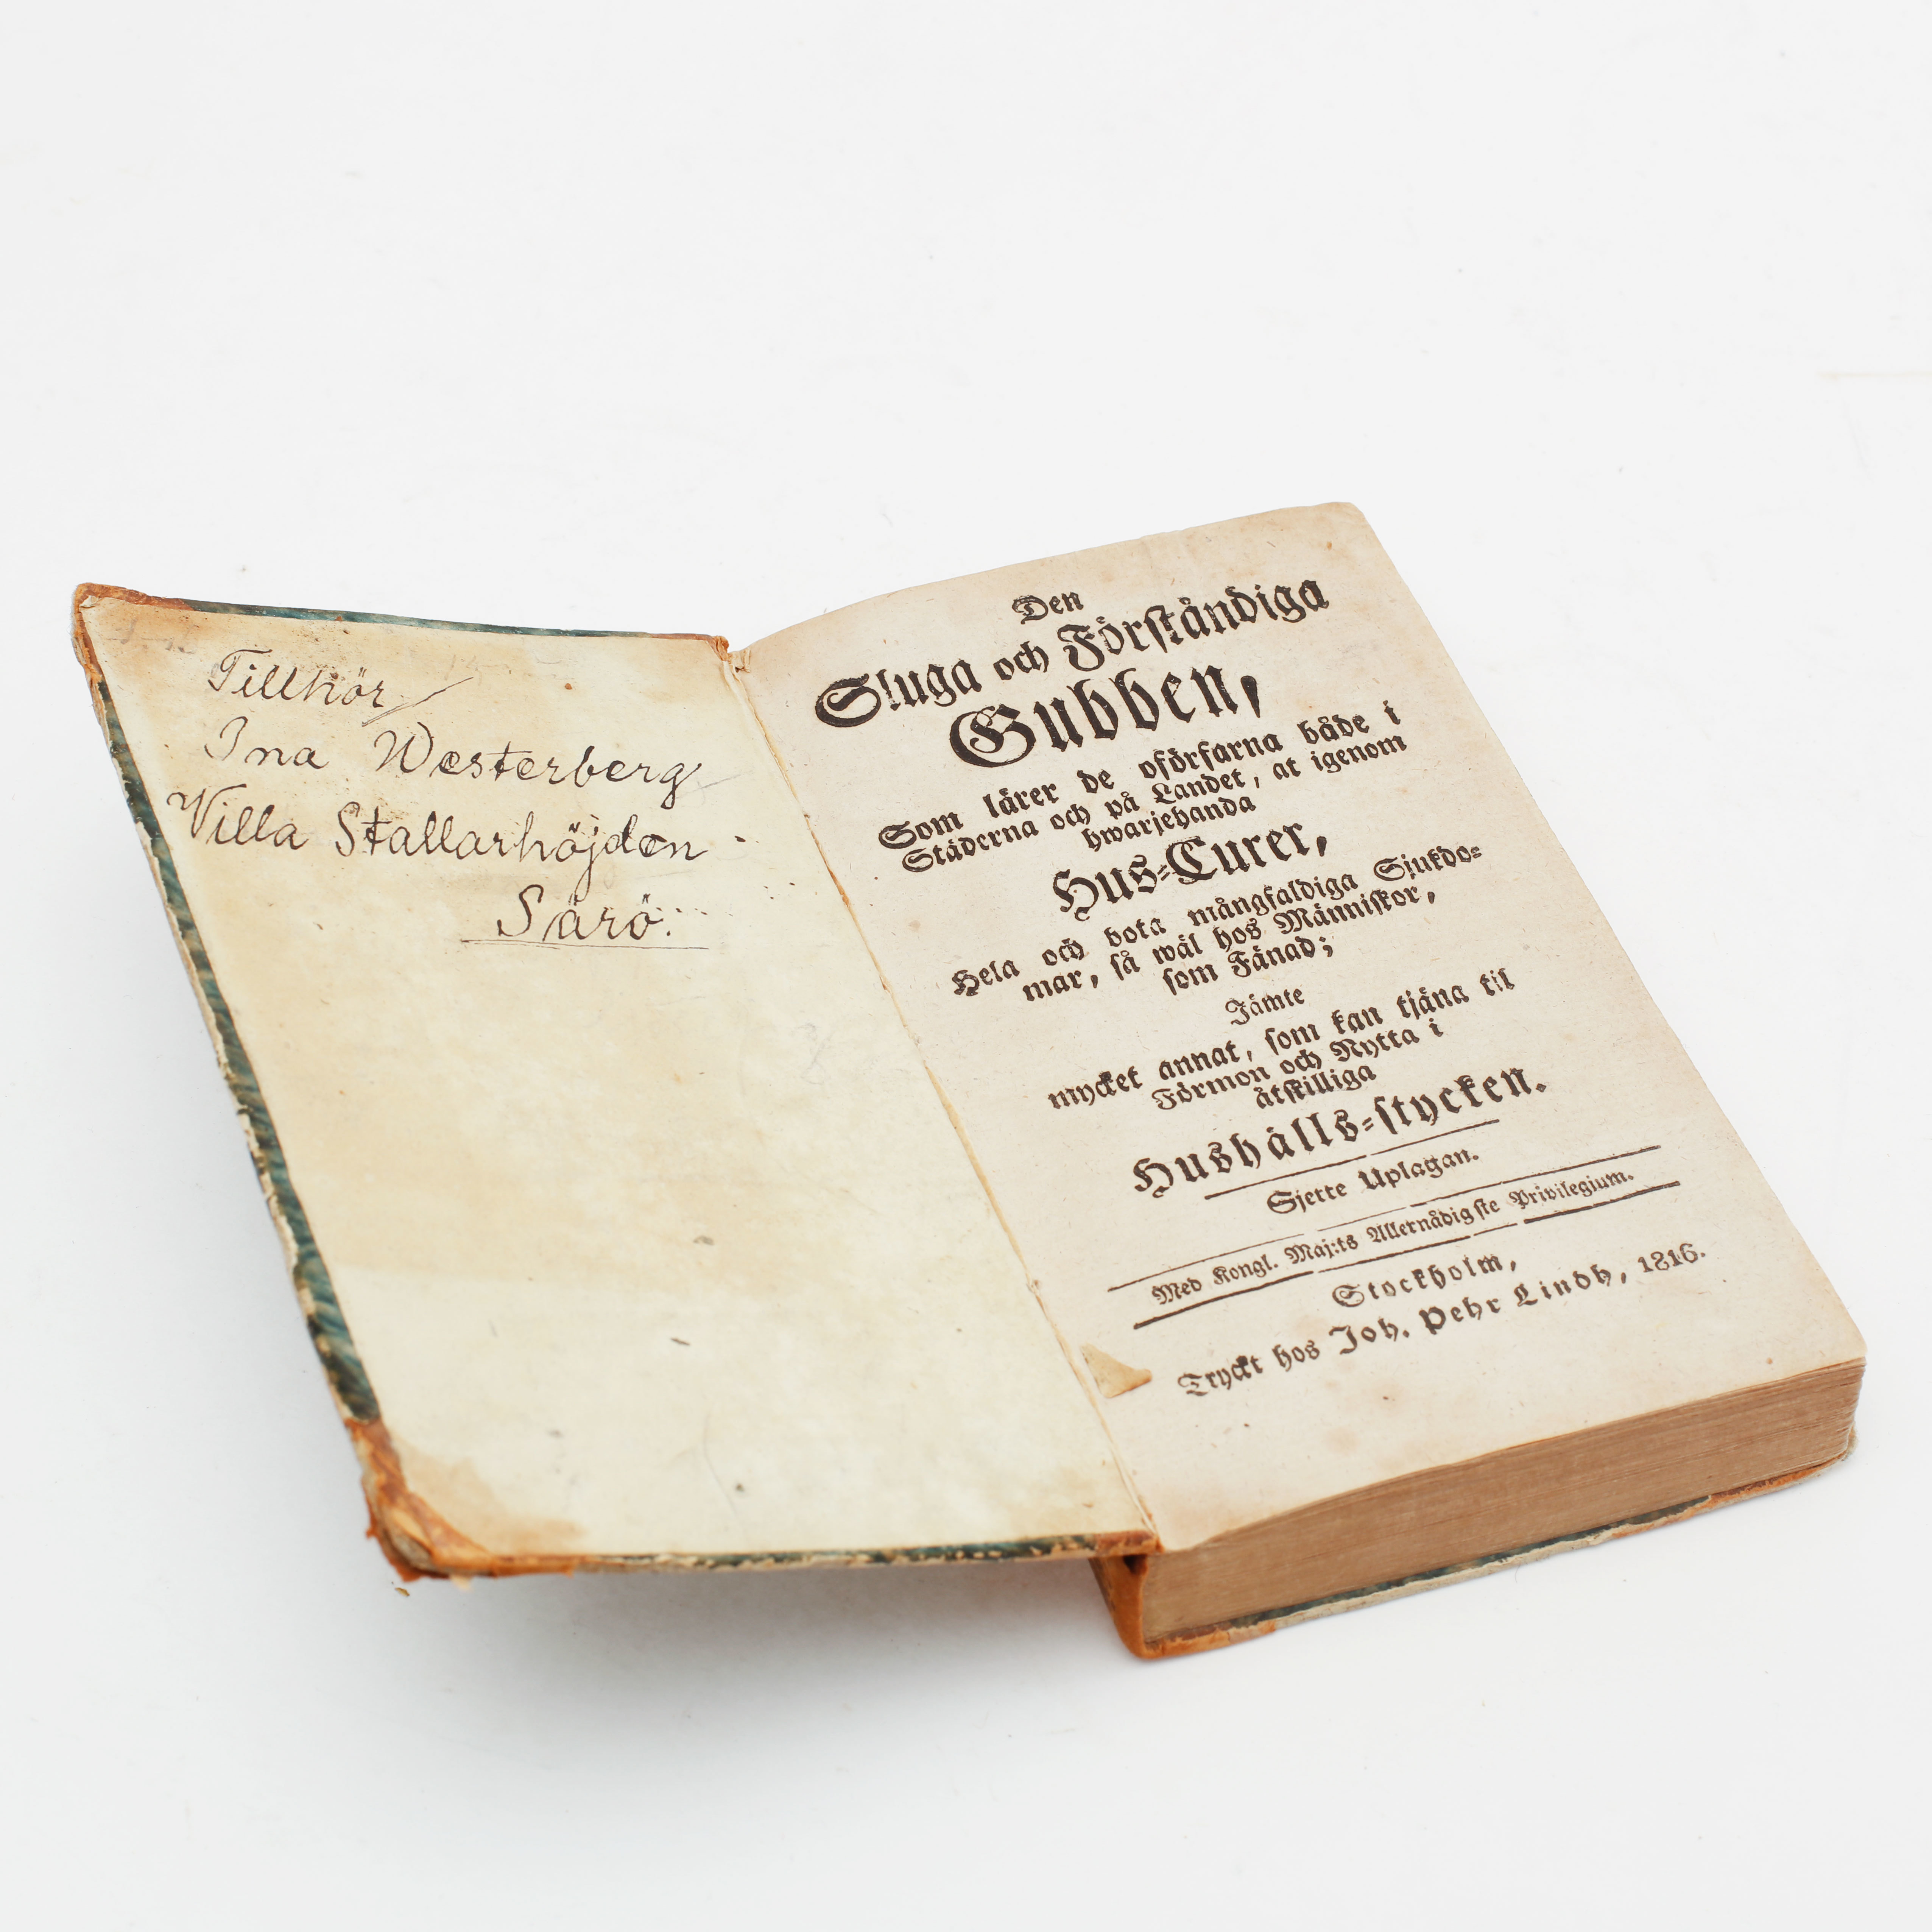 Tillhör
Ina Westerberg
Villa Stallarhöjden
Särö.
Den
Sluga och Förståndiga
Gubben,
Som lärer de oförfarna både i
Städerna och på Landet, at igenom
hwarjehanda
Hus-Curer,
Hela och bota mångfaldiga Sjukdo-
mar, så wäl hos Människor,
som Fänad;
Jämte
mycket annat, som kan tjäna til
Förmon och Nytta i
åtskilliga
Hushålls-stycken.
Sjette Uplagan.
Med Kongl. Maj:ts Allernådigste Privilegium.
Stockholm,
Tryckt hos Joh. Pehr Lindh, 1816.